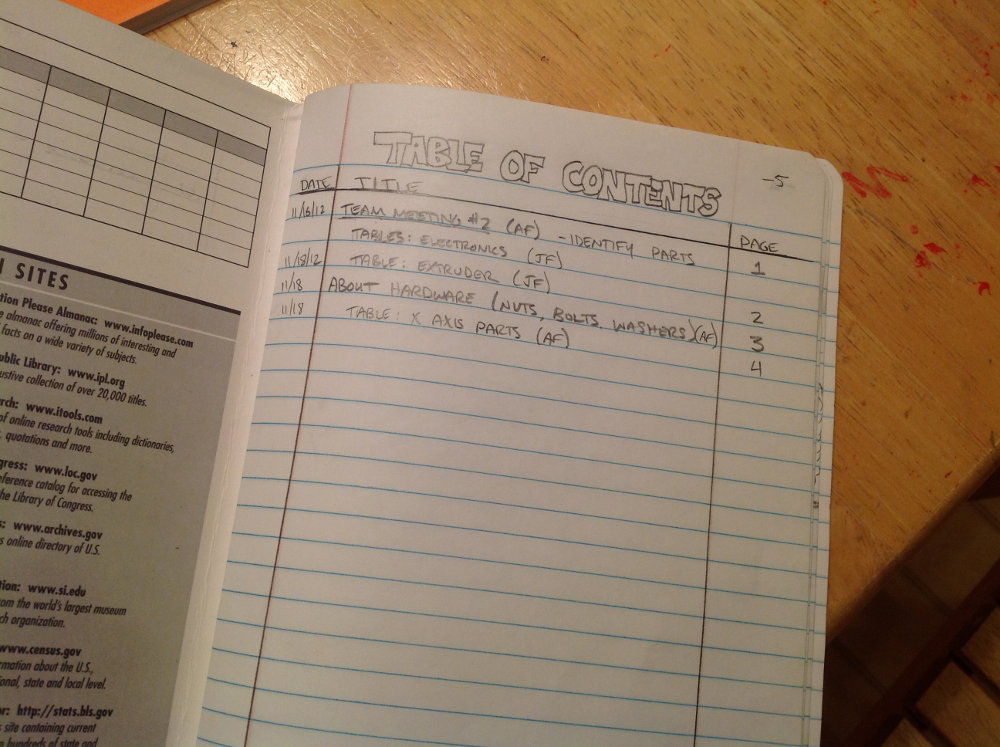 I SITES
tion Please Almanac: www.infoplease.com
almanac offering millions of interesting and
facts on a wide variety of subjects.
ublic Library: www.ipl.org
ustive collection of over 20,000 titles.
rch: www.itools.com
of online research tools including dictionaries,
, quotations and more.
gress: www.loc.gov
ference catalog for accessing the
he Library of Congress.
s: www.archives.gov
s online directory of U.S.
tion: www.si.edu
om the world's largest museum
ch organization.
www.census.gov
rmation about the U.S.,
ional, state and local level.
or: http://stats.bls.gov
site containing current
hundreds of state and
TABLE OF CONTENTS -5
DATE TITLE PAGE
11/6/12 TEAM MEETING #2 (AF) - IDENTIFY PARTS 1
TABLES: ELECTRONICS (JF)
11/18/12 TABLE: EXTRUDER (JF) 2
11/18 ABOUT HARDWARE (NUTS, BOLTS, WASHERS)(AF) 3
11/18 TABLE: X AXIS PARTS (AF) 4